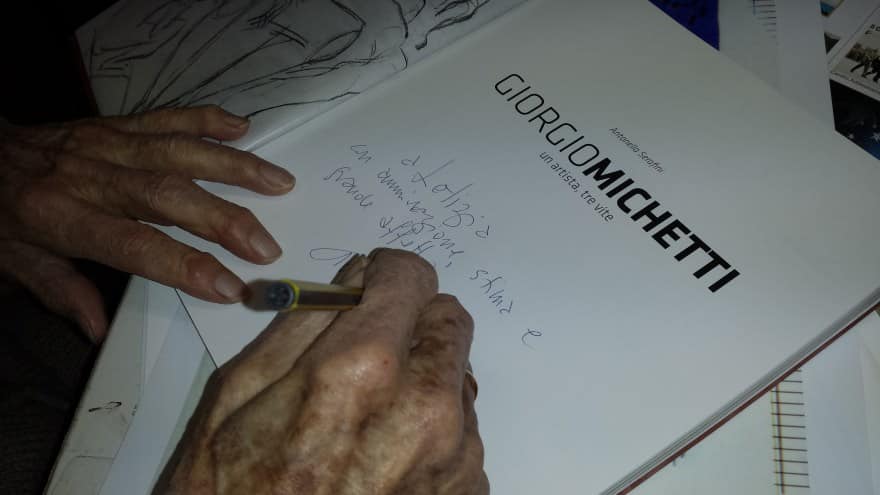 Antonello Serafini
GIORGIOMICHETTI
un artista, tre vite
a Letizia
con ammirazione, stima e
grande affetto